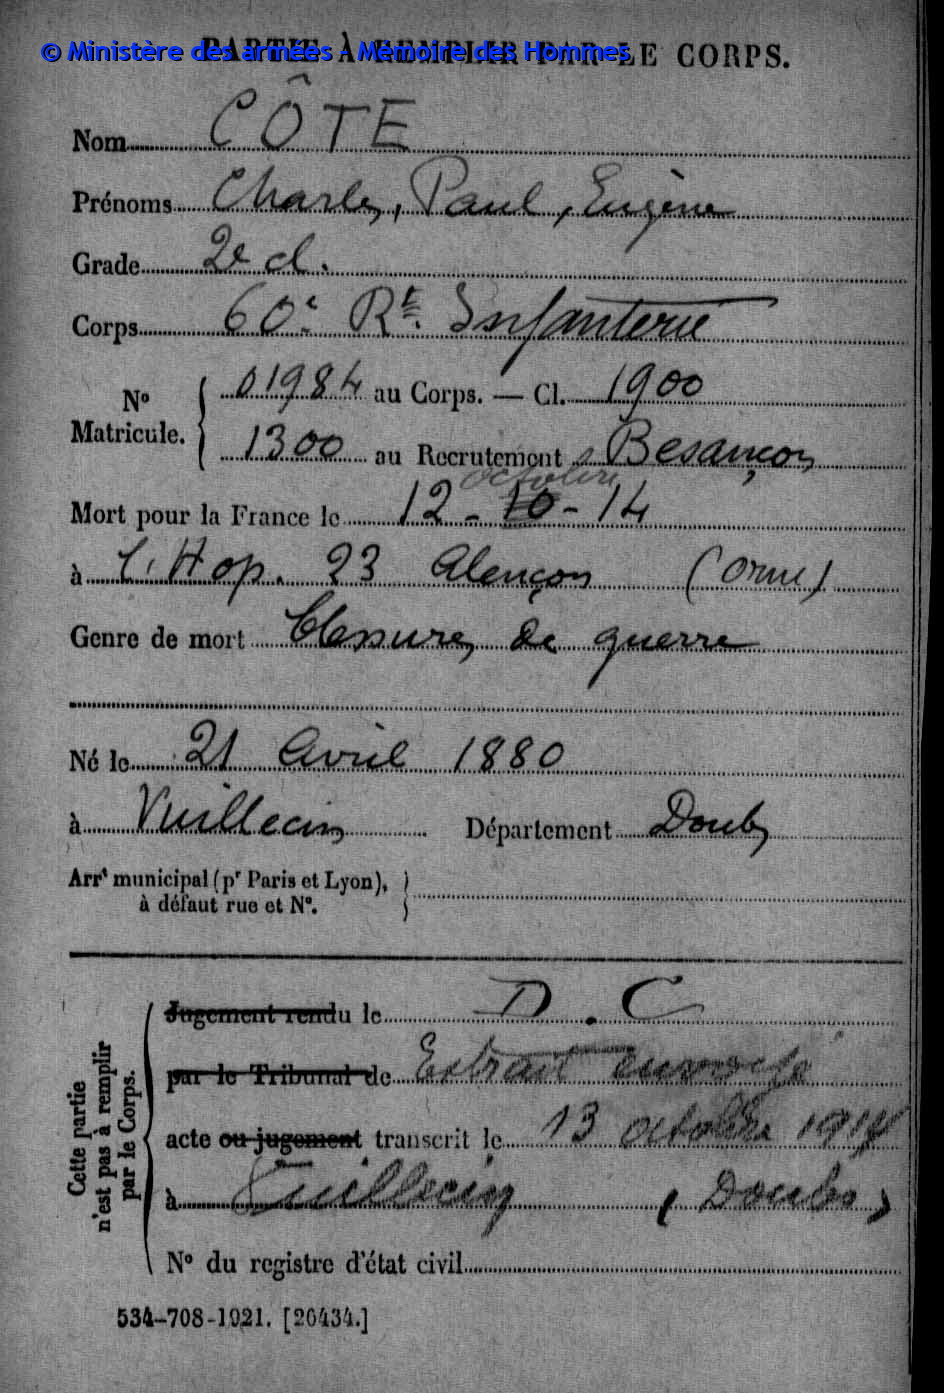 PARTIE À REMPLIR PAR LE CORPS.
© Ministère des armées - Mémoire des Hommes
Nom CÔTE
Prénoms Charles, Paul, Eugène
Grade 2e cl.
Corps 60e Rt. Infanterie
No Matricule. { 01984 au Corps. — Cl. 1900
1300 au Recrutement Besançon
octobre
Mort pour la France le 12 - 10 - 14
à l'Hop. 23 Alençon (Orne)
Genre de mort blessures de guerre
Né le 21 Avril 1880
à Vuillecin Département Doubs
Arrt municipal (pr Paris et Lyon), à défaut rue et No. }
Cette partie n'est pas à remplir par le Corps. {
Jugement rendu le D. C
par le Tribunal de Extrait envoyé
acte ou jugement transcrit le 13 octobre 1914
à Vuillecin (Doubs)
No du registre d'état civil
534-708-1921. [26434.]